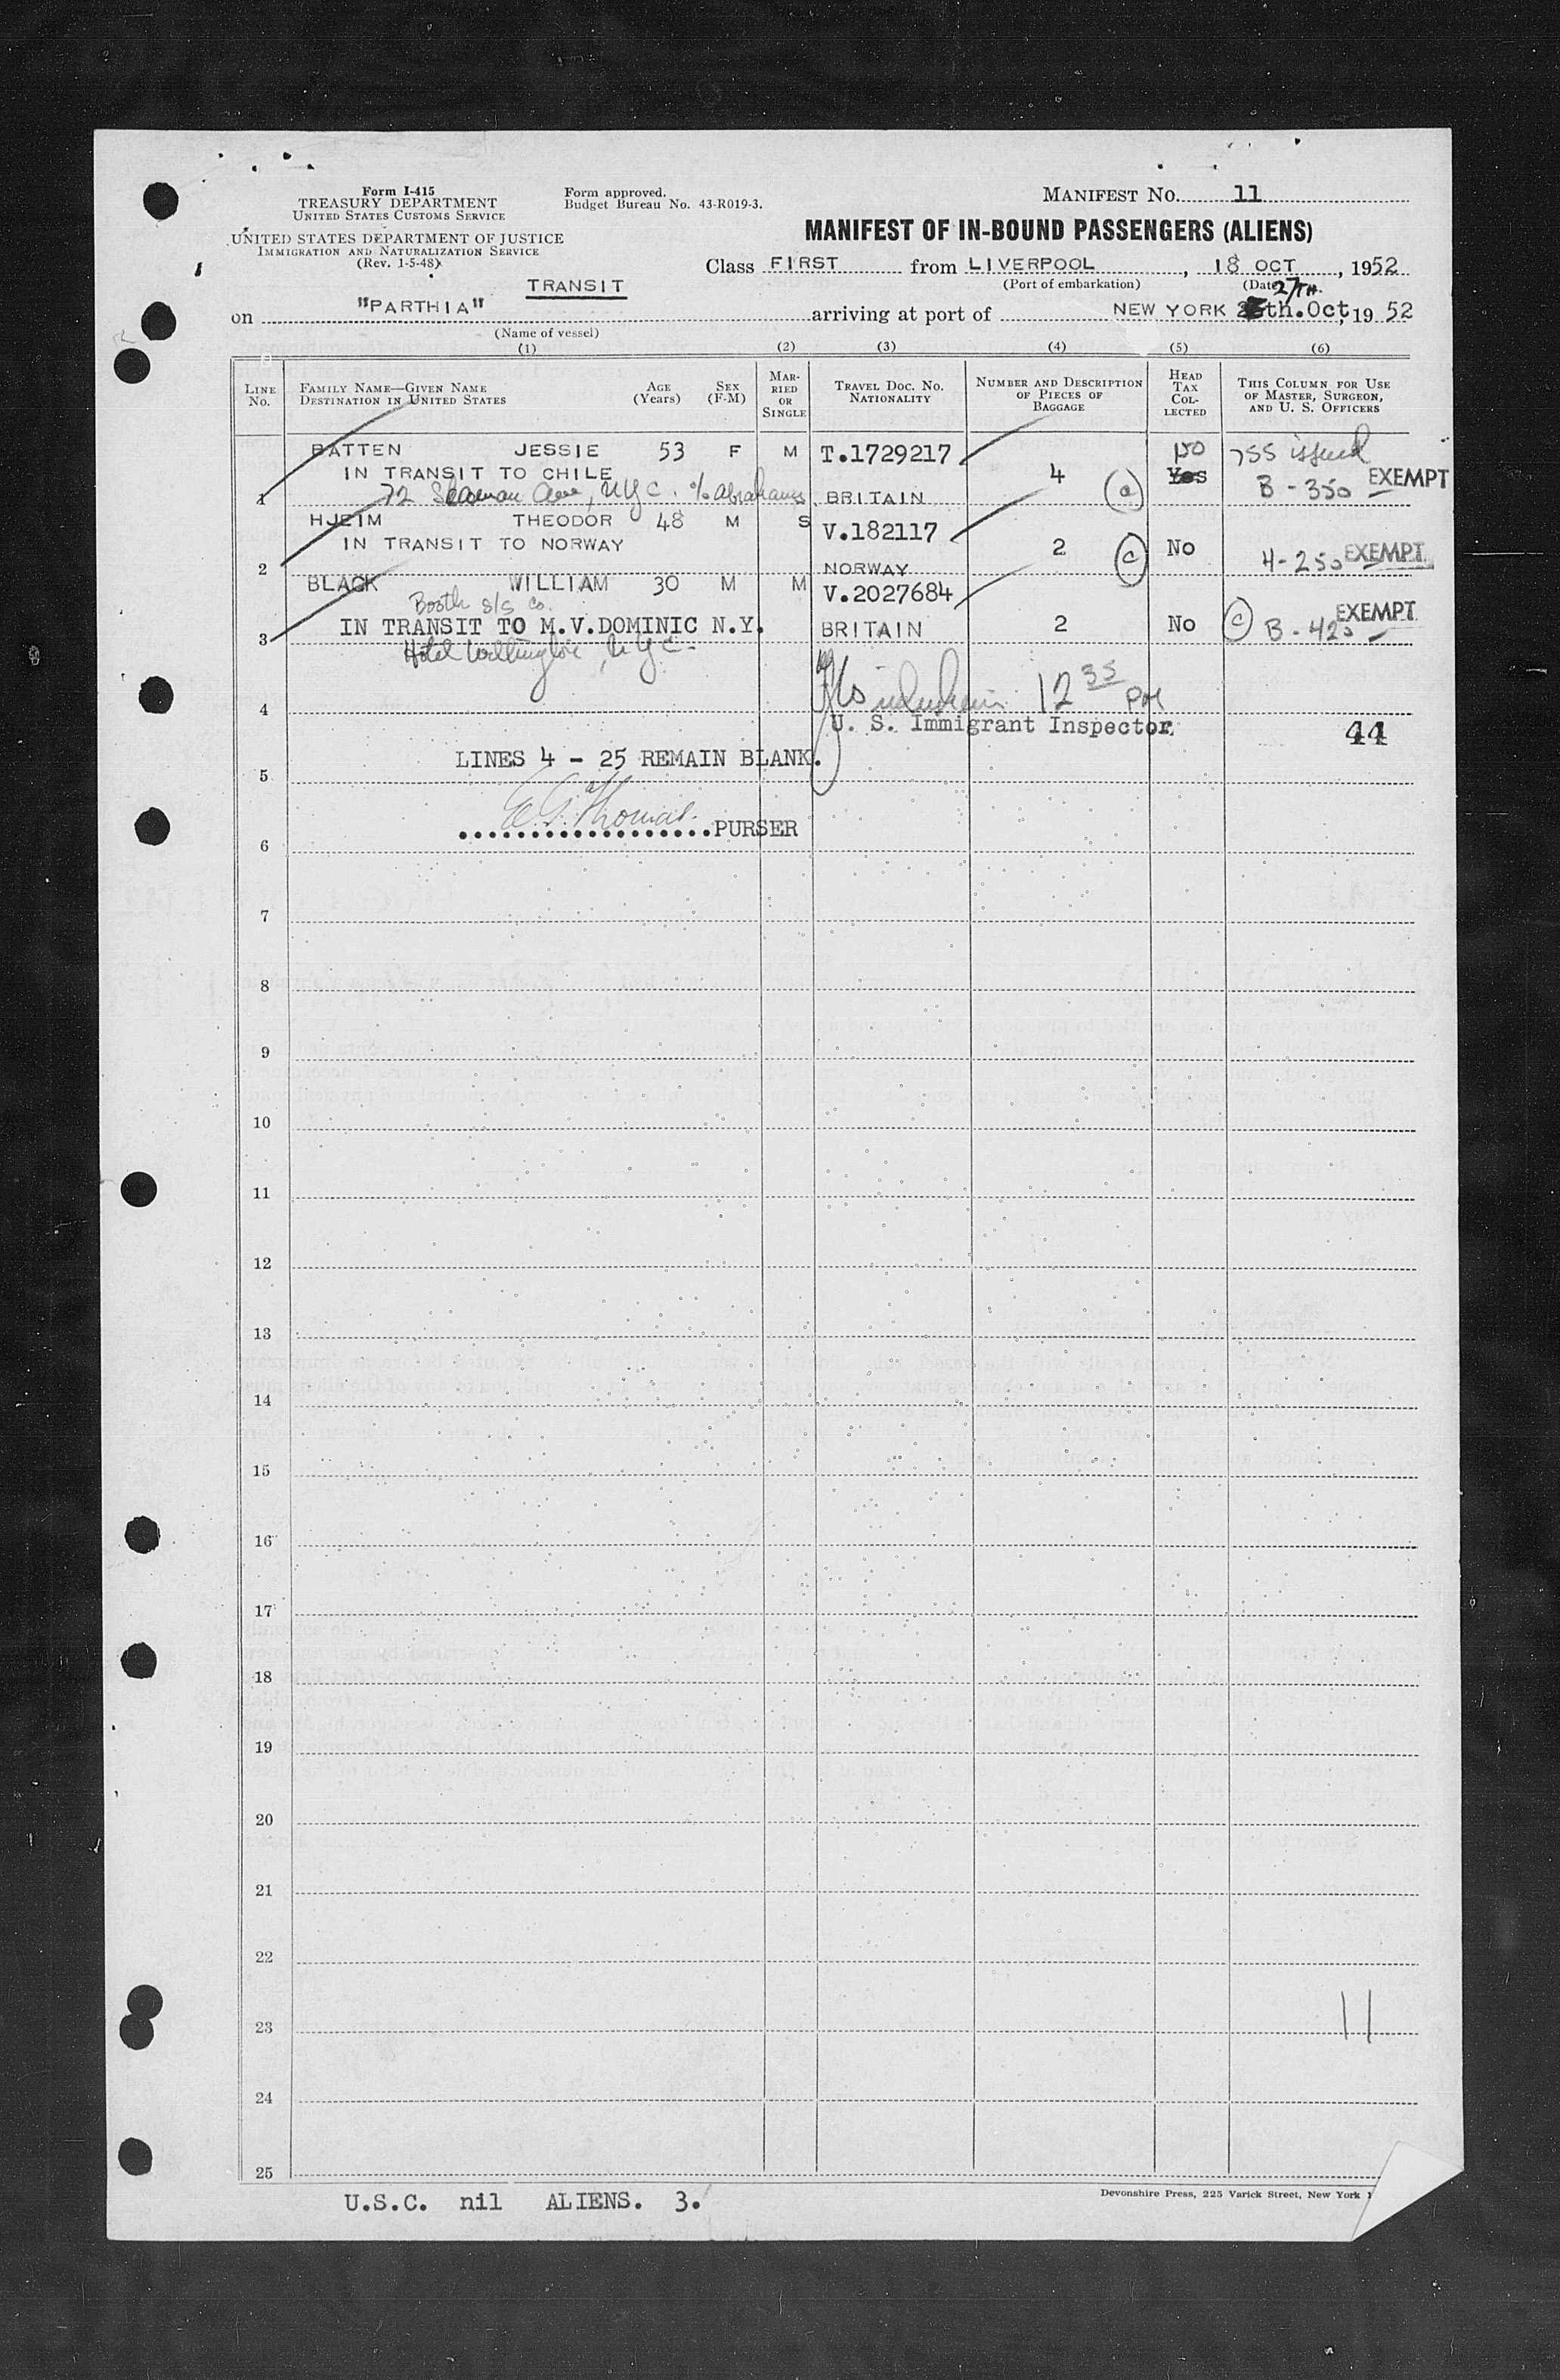 Form I-415
TREASURY DEPARTMENT
UNITED STATES CUSTOMS SERVICE
UNITED STATES DEPARTMENT OF JUSTICE
IMMIGRATION AND NATURALIZATION SERVICE
(Rev. 1-5-48)
Form approved.
Budget Bureau No. 43-R019-3.
MANIFEST NO. 11
MANIFEST OF IN-BOUND PASSENGERS (ALIENS)
Class FIRST from LIVERPOOL, 18 OCT, 1952
(Port of embarkation) (Date)
TRANSIT
27TH.
on "PARTHIA" arriving at port of NEW YORK th. Oct, 19 52
(Name of vessel)
(1) (2) (3) (4) (5) (6)
LINE No. FAMILY NAME—GIVEN NAME DESTINATION IN UNITED STATES AGE (Years) SEX (F-M) MARRIED OR SINGLE TRAVEL DOC. NO. NATIONALITY NUMBER AND DESCRIPTION OF PIECES OF BAGGAGE HEAD TAX COLLECTED THIS COLUMN FOR USE OF MASTER, SURGEON, AND U. S. OFFICERS
BATTEN JESSIE 53 F M T.1729217 no 755 issued
IN TRANSIT TO CHILE 4 Yes B-350 EXEMPT
1 72 Seaman Ave, NYC. % Abrahams BRITAIN (a)
HJEIM THEODOR 48 M S V.182117
IN TRANSIT TO NORWAY 2 (c) No 4-250 EXEMPT
2 NORWAY
BLACK WILLIAM 30 M M V.2027684
Booth S/S Co.
IN TRANSIT TO M.V.DOMINIC N.Y. BRITAIN 2 No (c) B-425 EXEMPT
3 Hotel Wellington, NYC.
12 35 PM
4
U. S. Immigrant Inspector 44
LINES 4 - 25 REMAIN BLANK.
5
E.G. Thomas.
PURSER
6
7
8
9
10
11
12
13
14
15
16
17
18
19
20
21
22
11
23
24
25
U.S.C. nil ALIENS. 3.
Devonshire Press, 225 Varick Street, New York